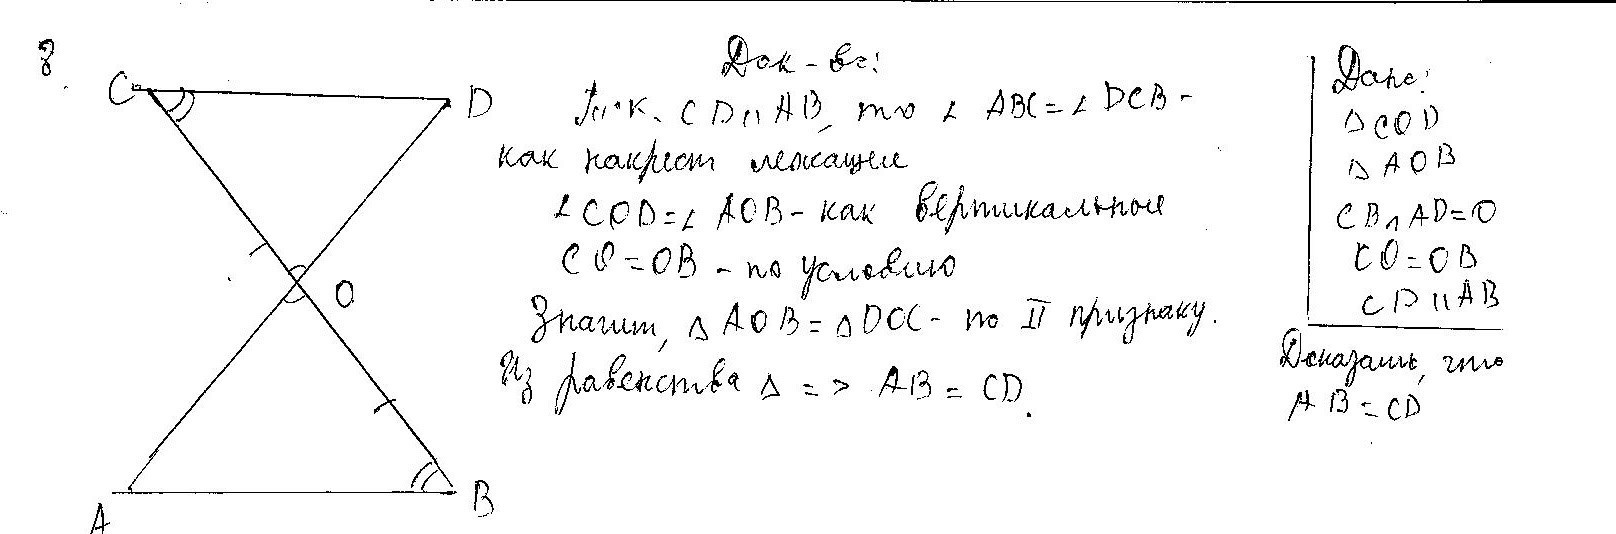 8.
C
D
O
A
B
Док-во:
Т.к. CD || AB, то ∠ ABC = ∠ DCB -
как накрест лежащие
∠ COD = ∠ AOB - как вертикальные
CO = OB - по условию
Значит, △ AOB = △ DOC - по II признаку.
Из равенства △ => AB = CD.
Дано:
△ COD
△ AOB
CB ∩ AD = O
CO = OB
CD || AB
Доказать, что
AB = CD